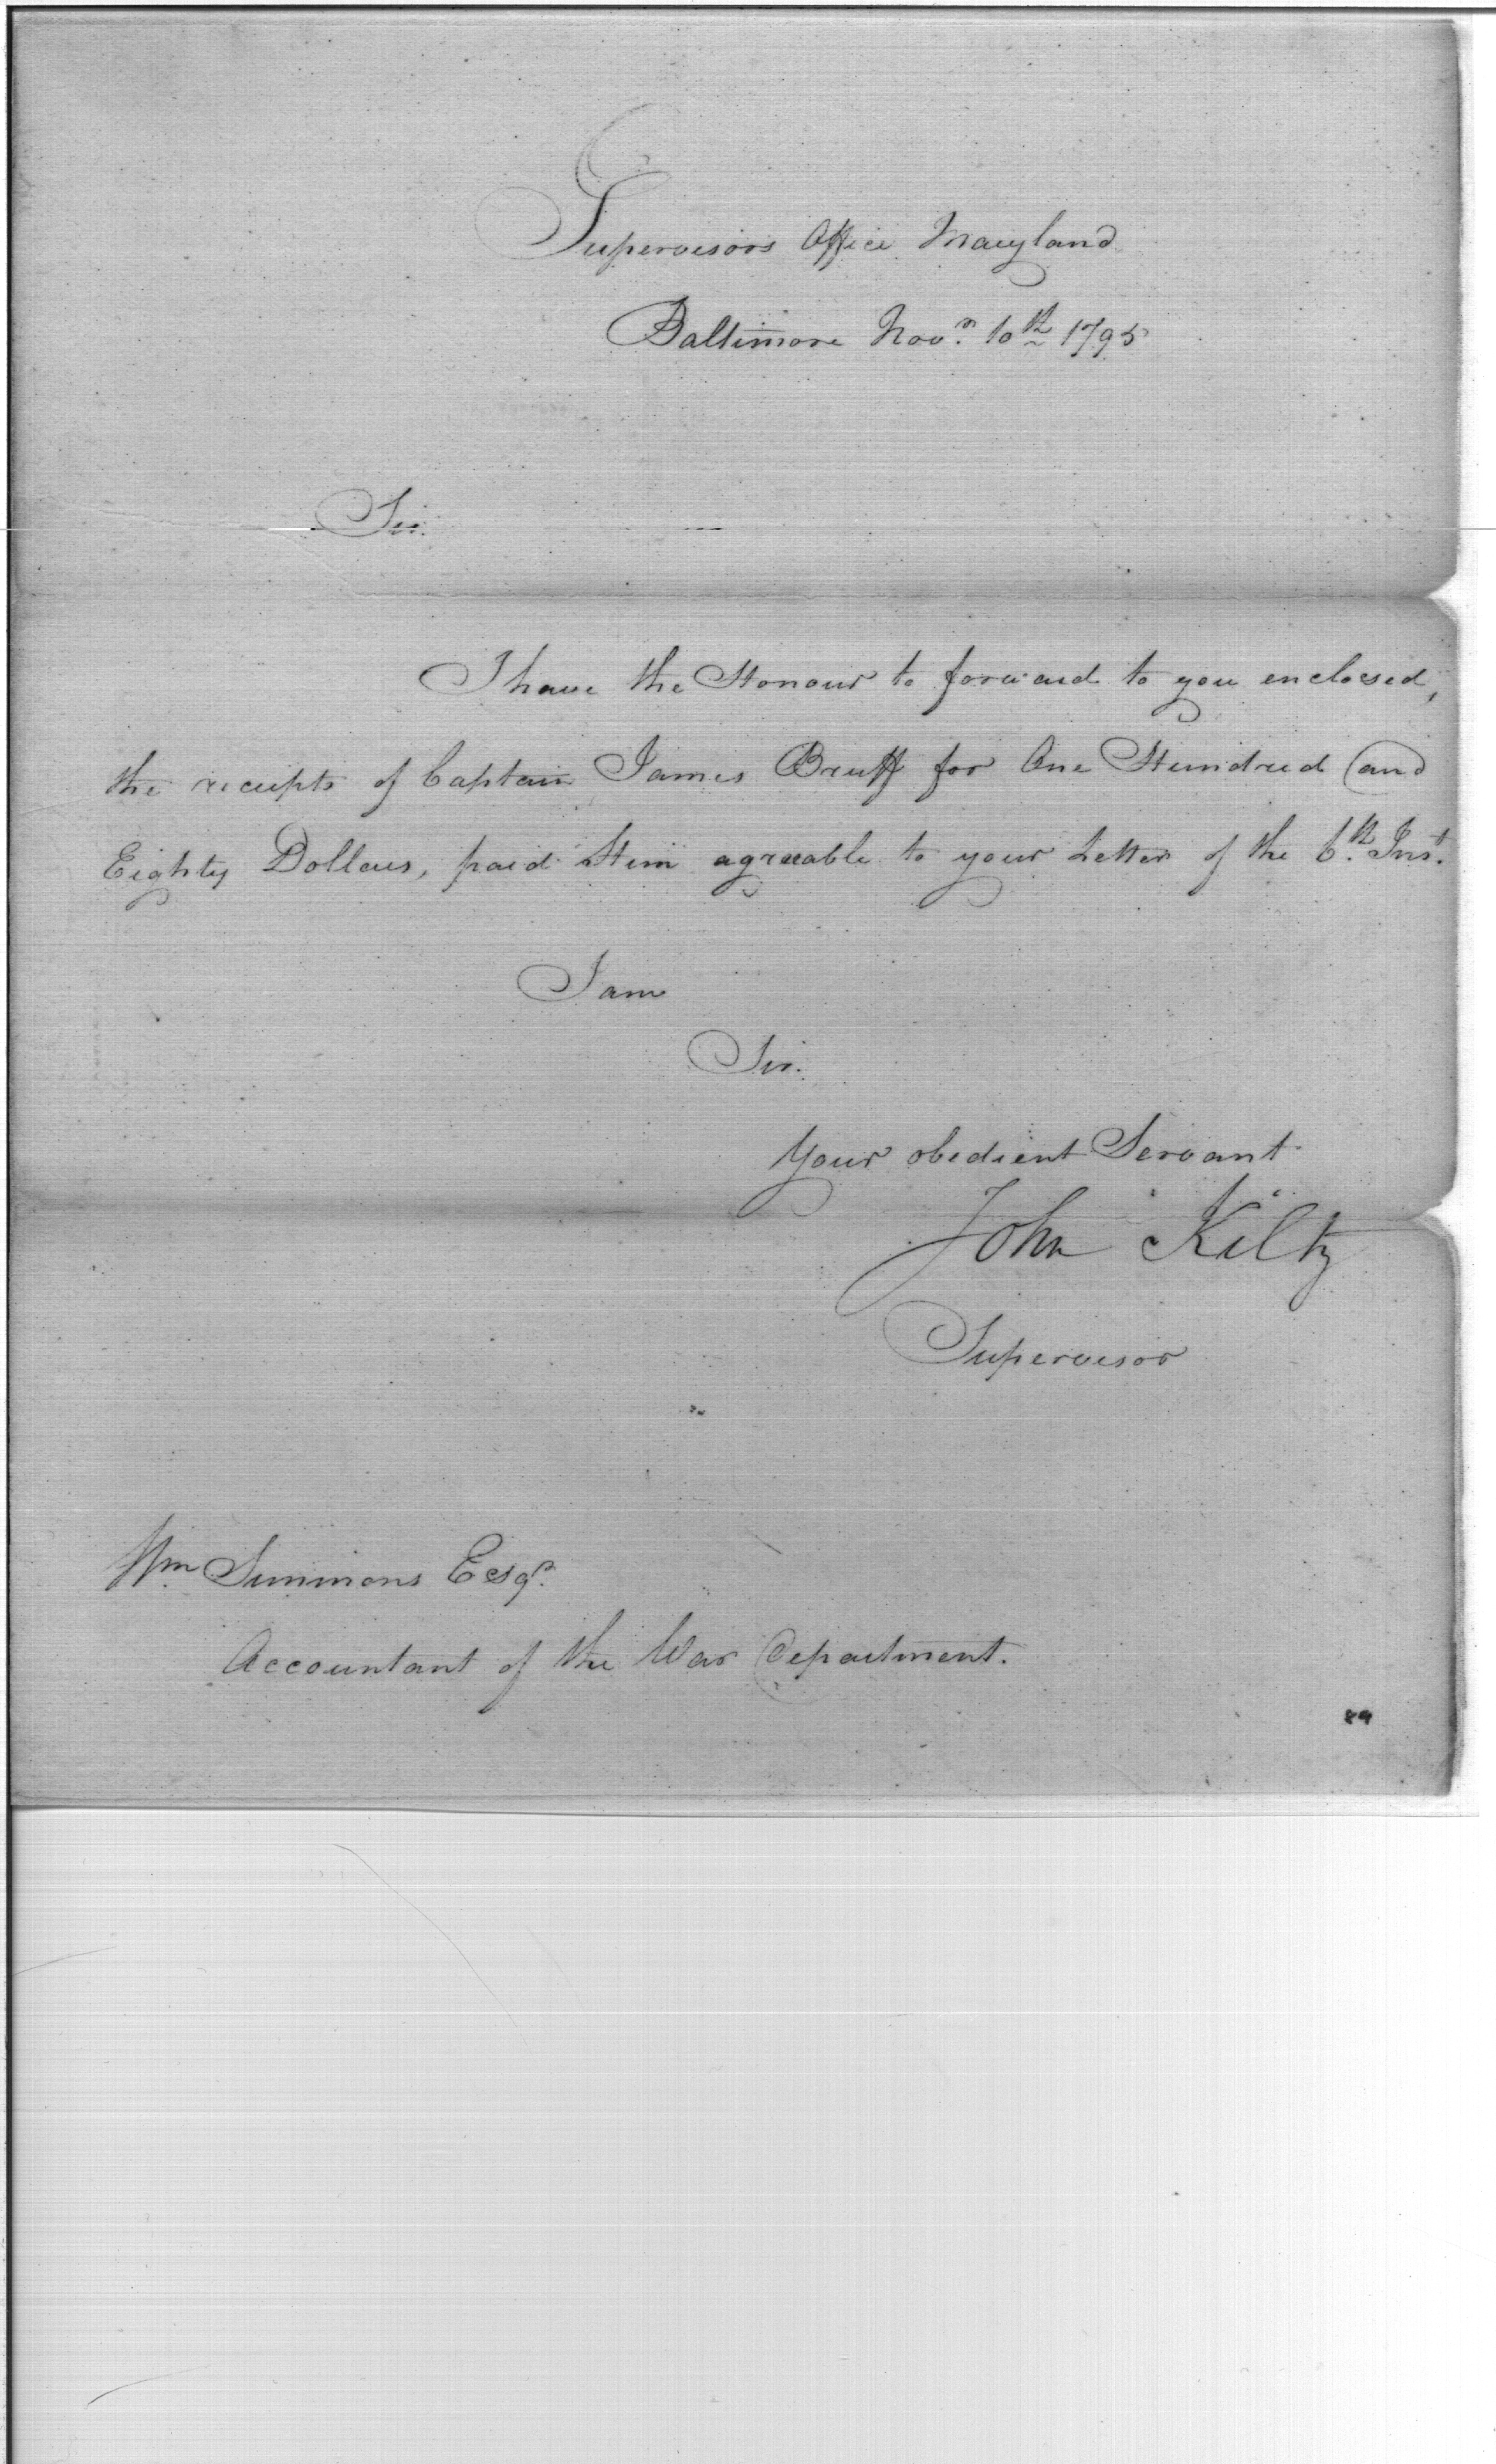 Supervisors Office Maryland
Baltimore Novr. 10th 1795
Sir.
I have the Honour to forward to you enclosed,
the receipts of Captain James Bruff for One Hundred and
Eighty Dollars, paid Him agreeable to your Letter of the 6th. Inst.
I am
Sir.
Your obedient Servant
John Kilty
Supervisor
Wm Simmons Esqr.
Accountant of the War Department.
89